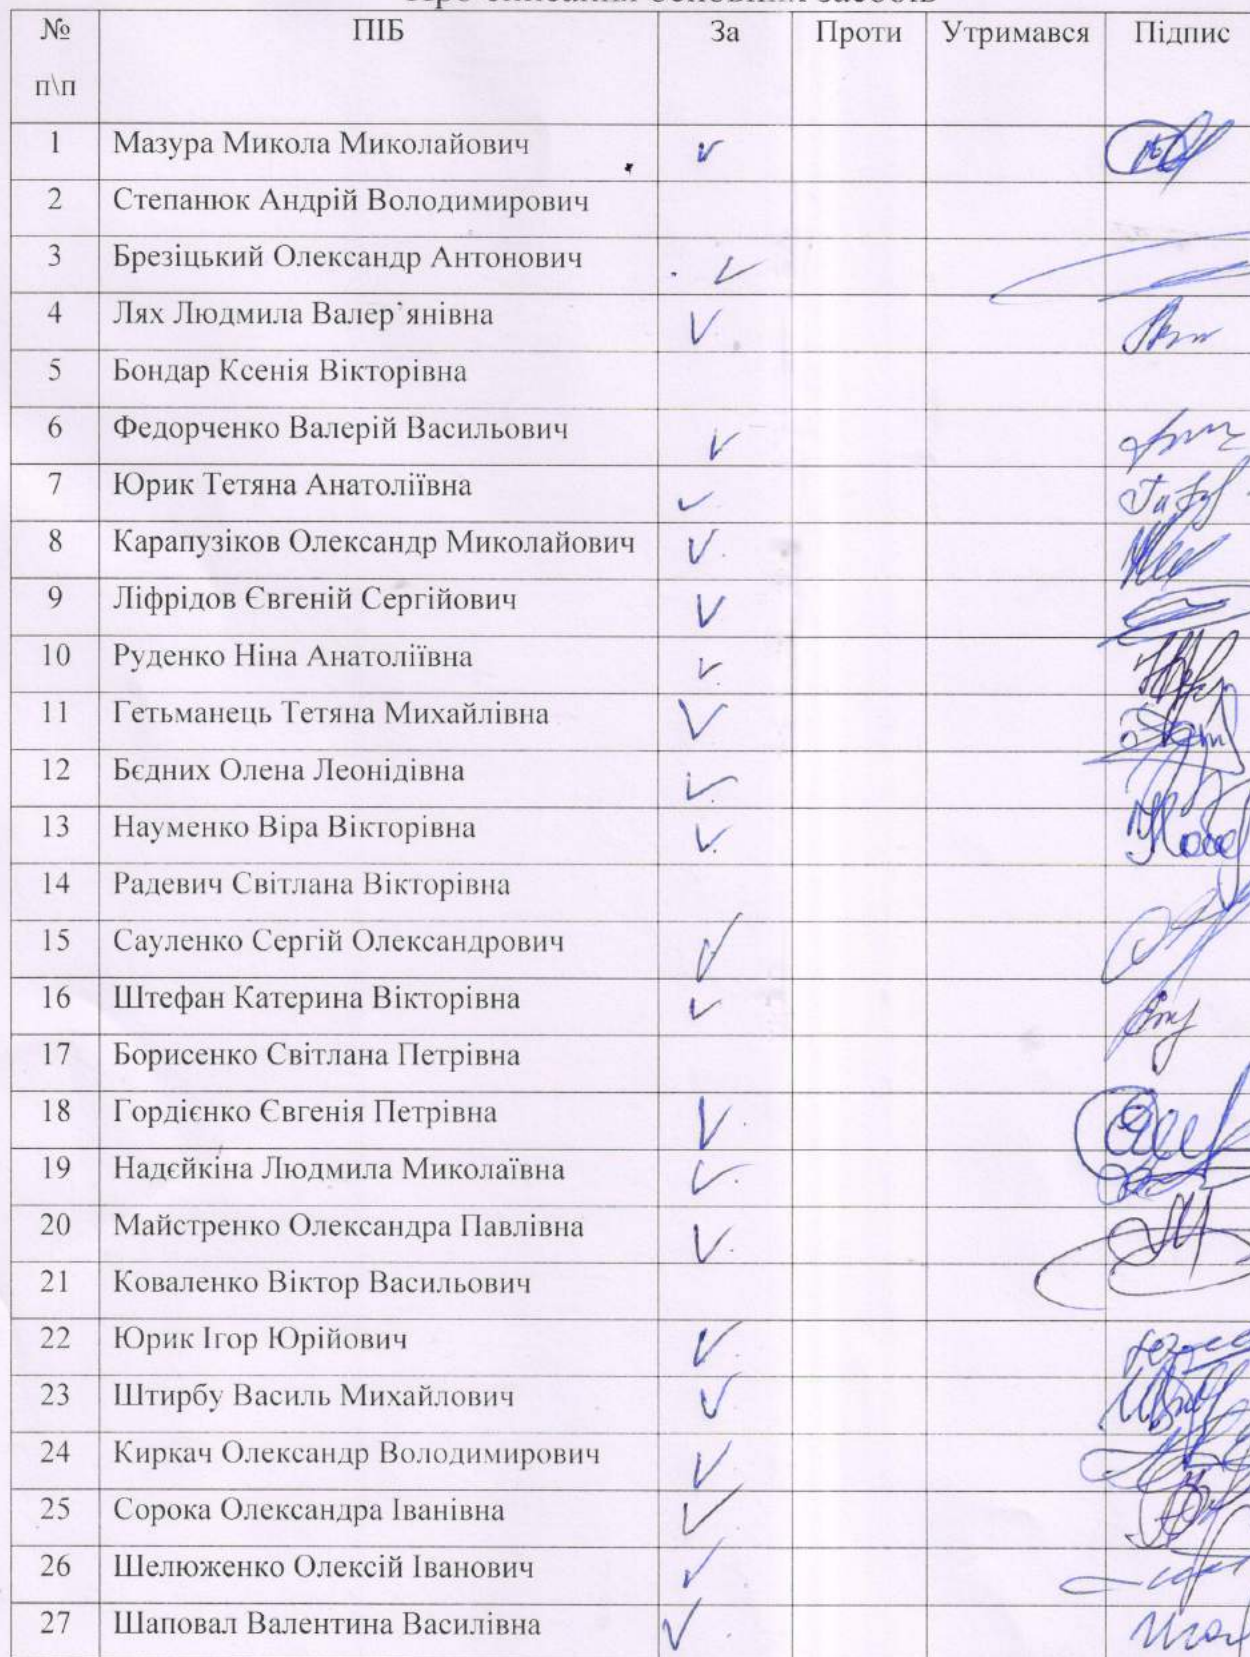 № ПІБ За Проти Утримався Підпис
п\п
1 Мазура Микола Миколайович
2 Степанюк Андрій Володимирович
3 Брезіцький Олександр Антонович
4 Лях Людмила Валер`янівна
5 Бондар Ксенія Вікторівна
6 Федорченко Валерій Васильович
7 Юрик Тетяна Анатоліївна
8 Карапузіков Олександр Миколайович
9 Ліфрідов Євгеній Сергійович
10 Руденко Ніна Анатоліївна
11 Гетьманець Тетяна Михайлівна
12 Бєдних Олена Леонідівна
13 Науменко Віра Вікторівна
14 Радевич Світлана Вікторівна
15 Сауленко Сергій Олександрович
16 Штефан Катерина Вікторівна
17 Борисенко Світлана Петрівна
18 Гордієнко Євгенія Петрівна
19 Надєйкіна Людмила Миколаївна
20 Майстренко Олександра Павлівна
21 Коваленко Віктор Васильович
22 Юрик Ігор Юрійович
23 Штирбу Василь Михайлович
24 Киркач Олександр Володимирович
25 Сорока Олександра Іванівна
26 Шелюженко Олексій Іванович
27 Шаповал Валентина Василівна